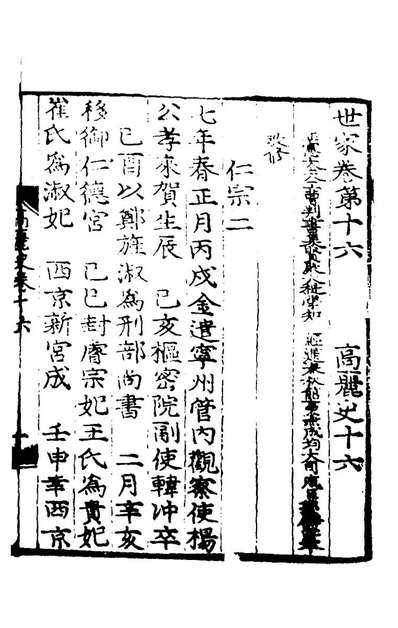 世家卷第十六　高麗史十六
正憲大夫工曹判書集賢殿大提學知　經筵春秋館事兼成均大司成臣鄭麟趾奉
敎修
仁宗二
七年春正月丙戌金遣寧州管內觀察使楊
公孝來賀生辰　己亥樞密院副使韓冲卒
己酉以鄭旌淑爲刑部尙書　二月辛亥
移御仁德宮　己巳封睿宗妃王氏爲貴妃
崔氏爲淑妃　西京新宮成　壬申幸西京
高麗史卷十六　一